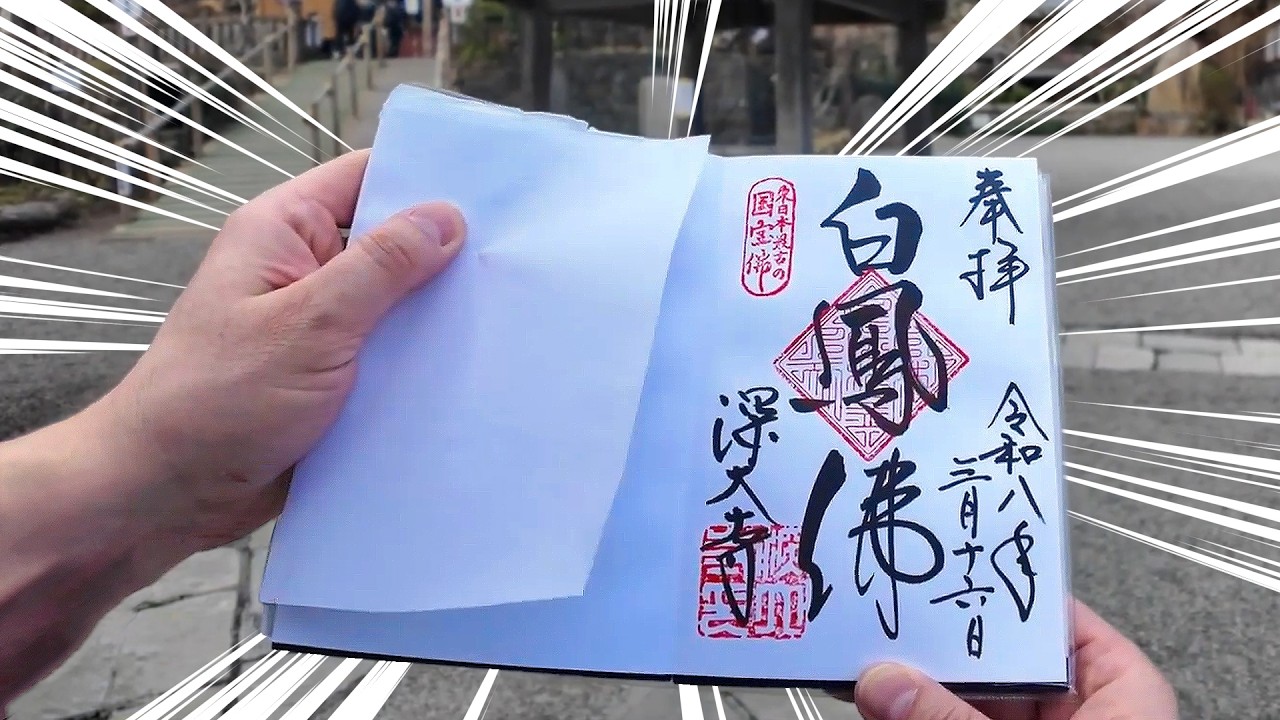 奉拝
令和八年
三月十六日
白鳳佛
東日本最古の
国宝佛
深大寺